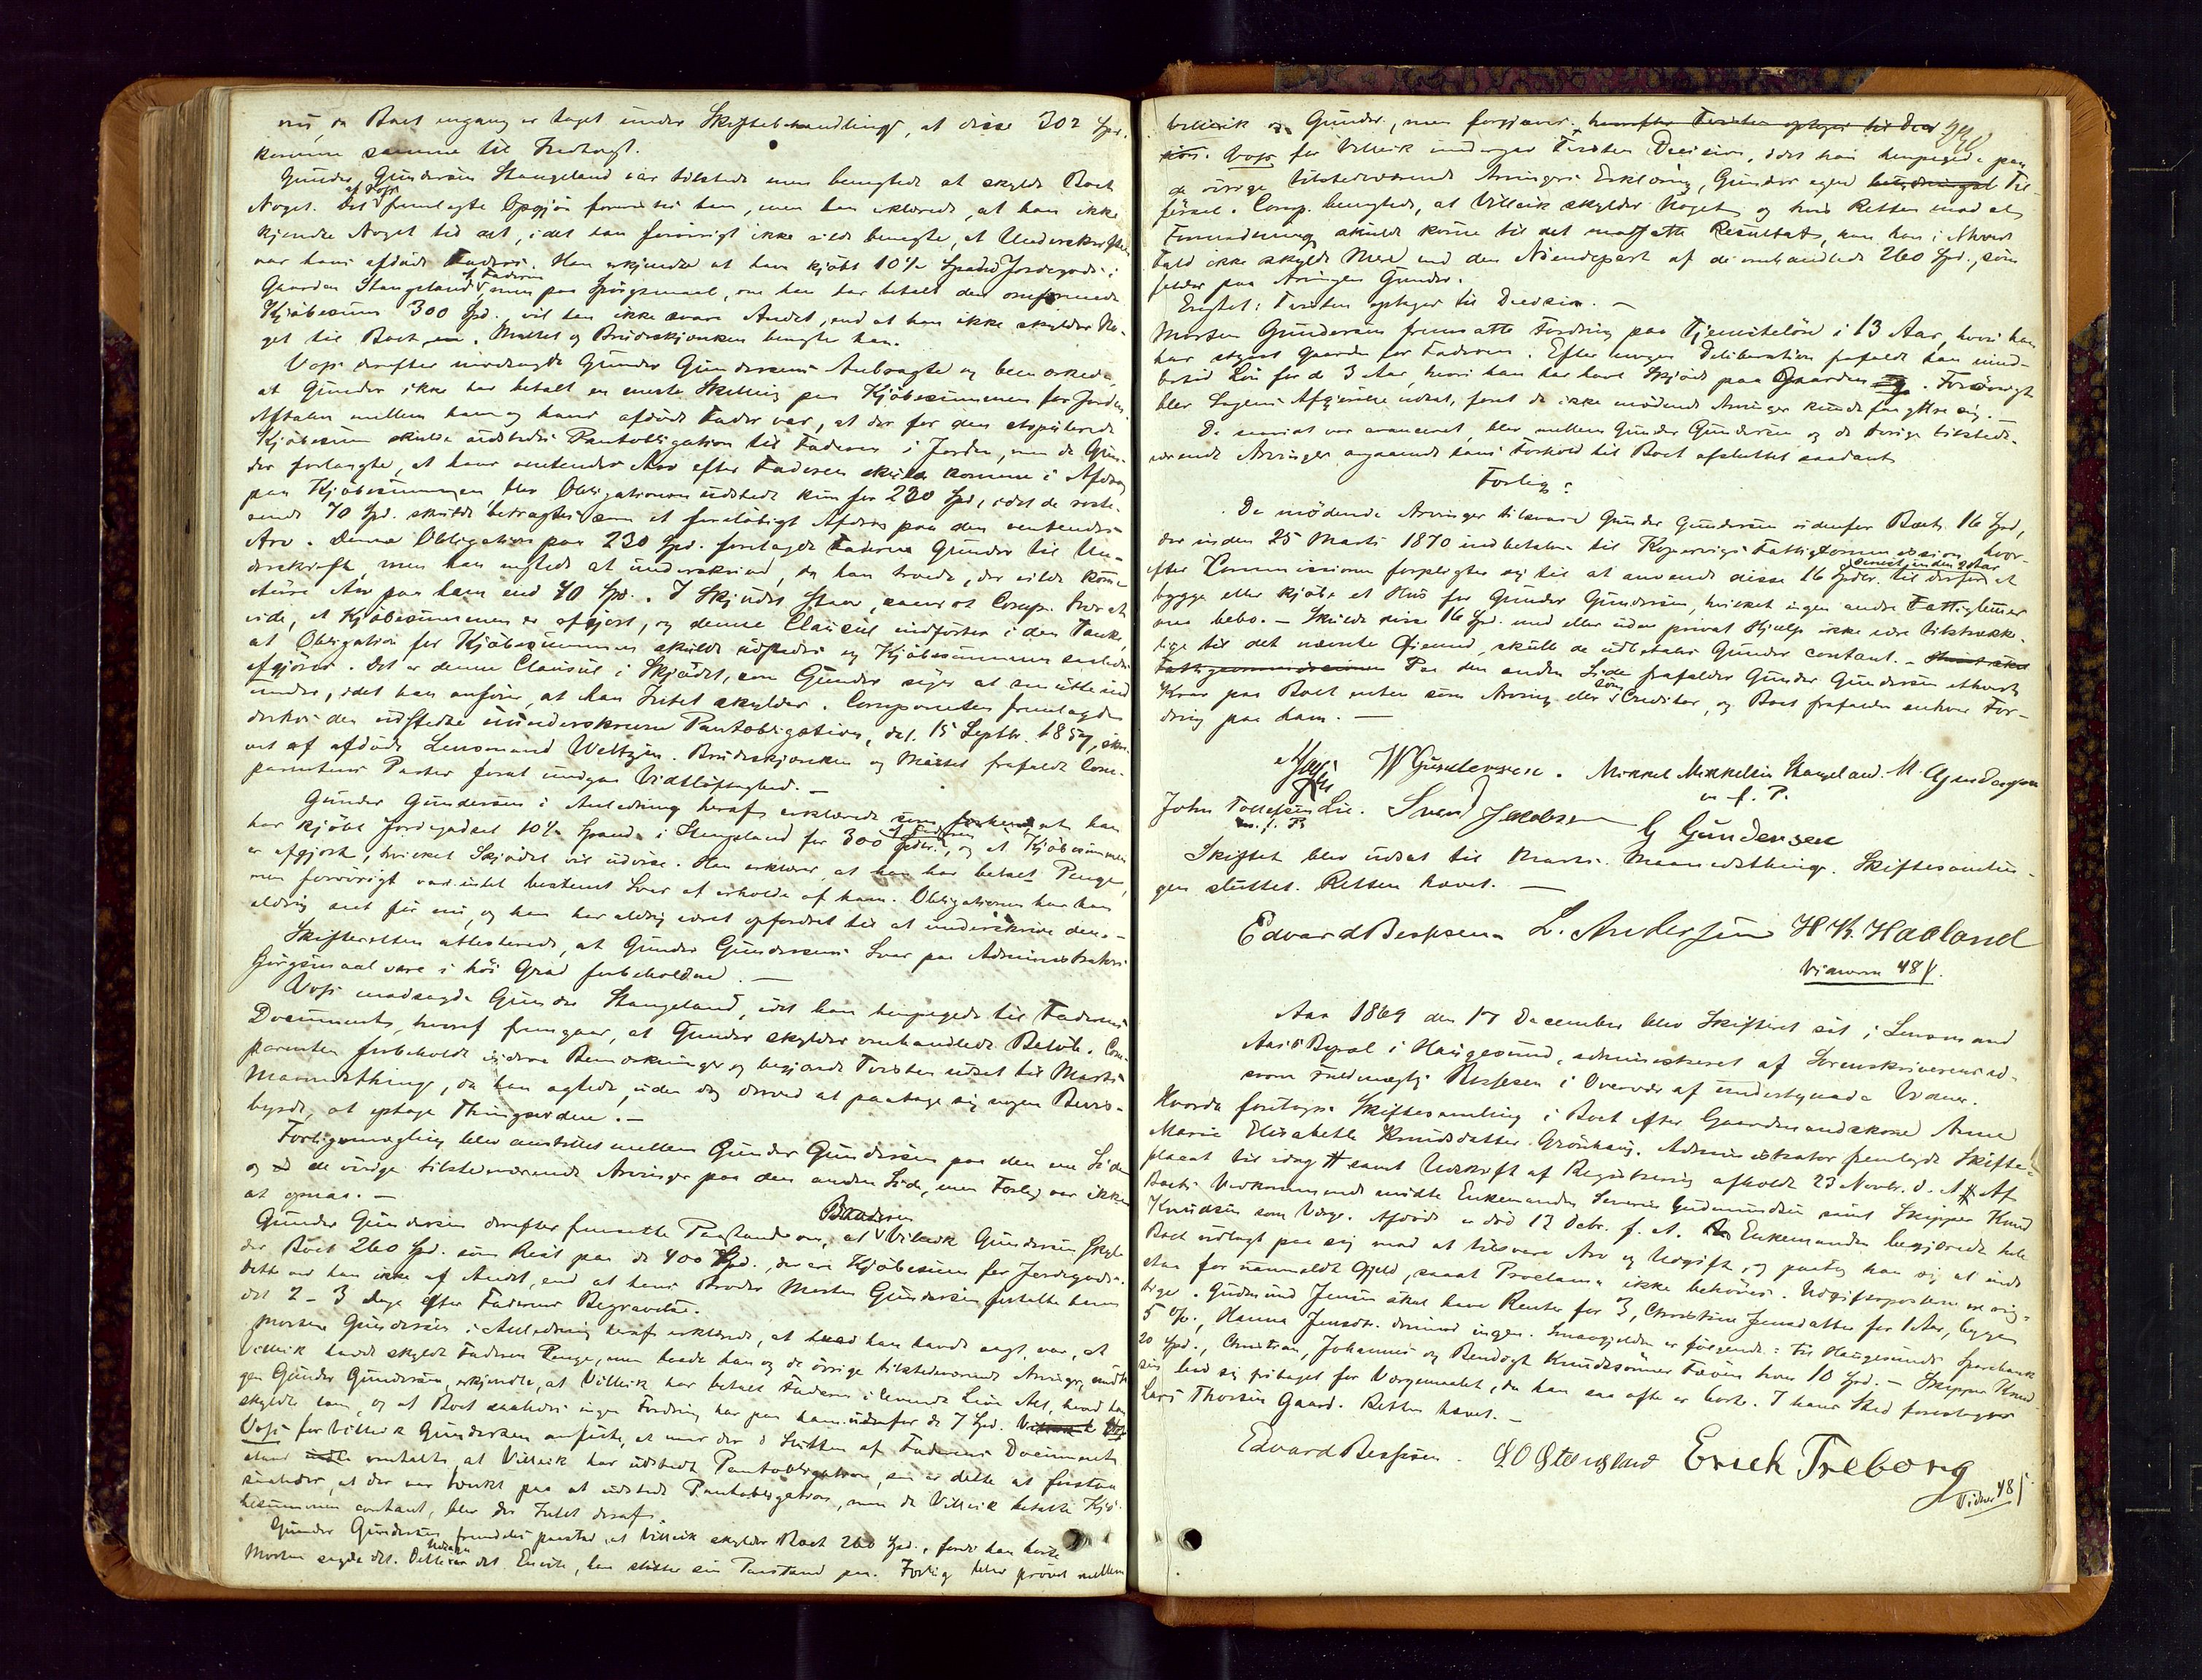 nu, da Boet engang er taget under Skiftebehandling, at disse 302 Spd.
komme samme til Indtægt.
Gunder Gundersen Stangeland var tilstede men benegtede at skylde Boet
Noget. Det af Voss fremlagte Opgjør foreviste ham, men han erklærede, at han ikke
kjendte Noget til det, idet han forøvrigt ikke vilde benegte, at Underskriften
var hans afdøde Faders. Han erkjendte at have kjøbt 10 1/2 Spands Jordegods i
Gaarden Stangeland af Faderen, men paa Spørgsmaal, om han har betalt den omforenede
Kjøbesum 300 Spd. vil han ikke svare Andet, end at han ikke skylder No-
get til Boet. Møllet og Brudeskjænken benegte han.
Voss derefter imødesagde Gunder Gundersens Anbragte og bemærkede,
at Gunder ikke har betalt en eneste Skilling paa Kjøbesummen for Jorden.
Aftalen mellem ham og hans afdøde Fader var, at der for den stipulerede
Kjøbesum skulde udstedes Pantobligation til Faderen i Jorden, men da Gun-
der forlangte, at hans ventendes Arv efter Faderen skulde komme i Afdrag
paa Kjøbesummen blev Obligationen udstedt kun for 230 Spd, idet de reste-
rende 70 Spd. skulde betragtes som et foreløbigt Afdrag paa den ventendes
Arv. Denne Obligation paa 230 Spd. forelagde Faderen Gunder til Un-
derskrift, men han negtede at underskrive, da han troede, der vilde komme
større Arv paa ham end 70 Spd. I Skjødet staar, saavidt Comp. tror at
vide, at Kjøbesummen er afgjort, og denne Clausul indførtes i den Tanke,
at Obligation for Kjøbesummen skulde udstedes og Kjøbesummen saaledes
afgjøres. Det er denne Clausul i Skjødet, som Gunder søger at smutte ind
under, idet han anfører, at han Intet skylder. Comparenten fremlagde
derhos den udstedte uunderskrevne Pantobligation, dat. 15 Septbr. 1857, skre-
vet af afdøde Lensmand Weltzin. Brudeskjænken og Møllet frafaldt Com-
parentens Parter forat undgaa Vidtløftighed. —
Gunder Gundersen i Anledning heraf erklærede at han
har kjøbt Jordegodset 10 1/2 Spand i Stangeland for 300 Spdlr. af Faderen, og at Kjøbesummen
er afgjort, hvilket Skjødet vil udvise. Han erklærer, at han har betalt Penge,
men forøvrigt var intet bestemt Svar at erholde af ham. Obligationen har han
aldrig seet før nu, og han har aldrig været opfordret til at underskrive den. —
Skifteretten attesterede, at Gunder Gundersens Svar paa Administrators
Spørgsmaal vare i høi Grad forbeholdne. —
Voss modsagde Gunder Stangeland, idet han henpegede til Faderens
Documents, hvoraf fremgaar, at Gunder skylder omhandlede Beløb. Com-
parenten forbeholdt videre Bemærkninger og begjærede Tvisten udsat til Marts
Maanedsthing, da han agtede, uden dog derved at paatage sig nogen Bevis-
byrde, at optage Thingsvidne. —
Forligsmægling blev anstillet mellem Gunder Gundersen paa den ene Side
og de øvrige tilstedeværende Arvinger paa den anden Side, men Forlig var ikke
at opnaa. —
Gunder Gundersen derefter fremsatte Paastand om, at Broderen Villeik Gundersen skyl-
der Boet 260 Spd. som Rest paa de 400 Spd., der er Kjøbesum for Jordegods.
Dette ved han ikke af Andet, end at hans Broder Morten Gundersen fortalte ham
det 2–3 Dage efter Faderens Begravelse.
Morten Gundersen i Anledning heraf erklærede, at hvad han havde sagt var, at
Villeik havde skyldt Faderen Penge, men baade han og de øvrige tilstedeværende Arvinger, undta-
gen Gunder Gundersen, erkjendte, at Villeik har betalt Faderen i levende Live Alt, hvad han
skyldte ham, og at Boet saaledes ingen Fordring har paa ham udenfor de 7 Spd.
Voss for Villeik Gundersen anførte, at naar der i Slutten af Faderens Document
staar omtalt, at Villeik har udstedt Pantobligation, saa er dette at forstaa
saaledes, at der var tænkt paa at udstede Pantobligation, men da Villeik betalte Kjø-
besummen contant, blev der Intet deraf.
Gunder Gundersen fremdeles paastod, at Villeik skylder Boet 260 Spd., fordi han hørte
Morten sagde det. Dette var det Eneste, han støtter sin Paastand paa. Forlig blev prøvet mellem
940
Villeik og Gunder, men forgjæves. herefter Tvisten optages til Deci
sion. Voss for Villeik indlod Tvisten Decision, idet han henpegede paa
de øvrige tilstedeværende Arvingers Erklæring, Gunder egen Til-
førsel. Comp. benegtede, at Villeik skylder Noget, og hvis Retten mod al
Formodning skulde komme til det modsatte Resultat, kan han i ethvert
Fald ikke skylde Mere end den Niendepart af de omhandlede 260 Spd., som
falder paa Arvingen Gunder.
Eragtet: Tvisten optages til Decision. —
Morten Gundersen fremsatte Fordring paa Tjenesteløn i 13 Aar, hvori han
har styret Gaarden for Faderen. Efter nogen Deliberation frafaldt han imid-
lertid Løn for de 3 Aar, hvori han har havt Skjøde paa Gaarden. Forøvrigt
blev Sagens Afgjørelse udsat, forat de ikke mødende Arvinger kunde faa yttre sig. —
Da saavidt var avanceret, blev mellem Gunder Gundersen og de øvrige tilstede-
værende Arvinger angaaende hans Forhold til Boet afsluttet saadant
Forlig:
De mødende Arvinger tilsvare Gunder Gundersen udenfor Boet 16 Spd,
der inden 25 Marts 1870 indbetales til Kopervigs Fattigkommission, hvor-
efter Kommissionen forpligter sig til at anvende disse 16 Spdlr. til derfor at
bygge eller kjøbe et Hus for Gunder Gundersen, hvilket ingen andre Fattiglemmer
maa bebo. — Skulde disse 16 Spd. med eller uden privat Hjælp ikke være tilstrække-
lige til det nævnte Øiemed, skulle de udbetales Gunder contant. —
Paa den anden Side frafalder Gunder Gundersen ethvert
Krav paa Boet enten som Arving eller som Creditor, og Boet frafalder enhver For-
dring paa ham. —
Voss W Gundersen. Mikkel Mikkelsen Stangeland. M. Gundersen
m. f. P.
John Tollefsen Lie. Svend Jacobsen G Gundersen
m. f. P.
Skiftet blev udsat til Marts Maanedsthing. Skiftesamlin-
gen sluttet. Retten hævet. —
Edvard Bessesen L. Andersen H K. Haaland
Vidnerne 48 ß.
Aar 1869 den 17 December blev Skifteret sat i Lensmand
Aas's Bopæl i Haugesund, administreret af Sorenskriverens ed-
svorne Fuldmægtig Bessesen i Overvær af undertegnede Vidner.
Hvorda foretoges Skiftesamling i Boet efter Gaardmandskone Anna
Marie Elisabeth Knudsdatter Grønhaug. Administrator fremlagde Skifte-
placat til idag samt Udskrift af Registrering afholdt 23 Novbr. d. A. Af
Boets Vedkommende mødte Enkemanden Severin Gudmundsen samt Skipper Knud
Knudsen som Værge. Afdøde er død 12 Octbr. f. A. Enkemanden begjærede hele
Boet udlagt paa sig mod at tilsvare Arv og Udgift, og paatog han sig at inde-
staa for uanmeldt Gjæld, saaat Proclama ikke behøves. Udgiftsposterne ere rig-
tige. Gudmund Jensen skal have Renter for 3, Christine Jensdatter for 1 Aar, begge
5 %, Hanna Jensdtr. derimod ingen. Smaagjælden er følgende: til Haugesunds Sparebank
20 Spd., Christian, Johannes og Bendigt Knudssønner Fæøen hver 10 Spd. — Skipper Knud-
sen bad sig fritaget for Værgemaalet, da han saa ofte er borte. I hans Sted foresloges
Lars Thorsen Gaard. Retten hævet. —
Edvard Bessesen. L O Stangeland Erick Treborg
Vidner 48 ß